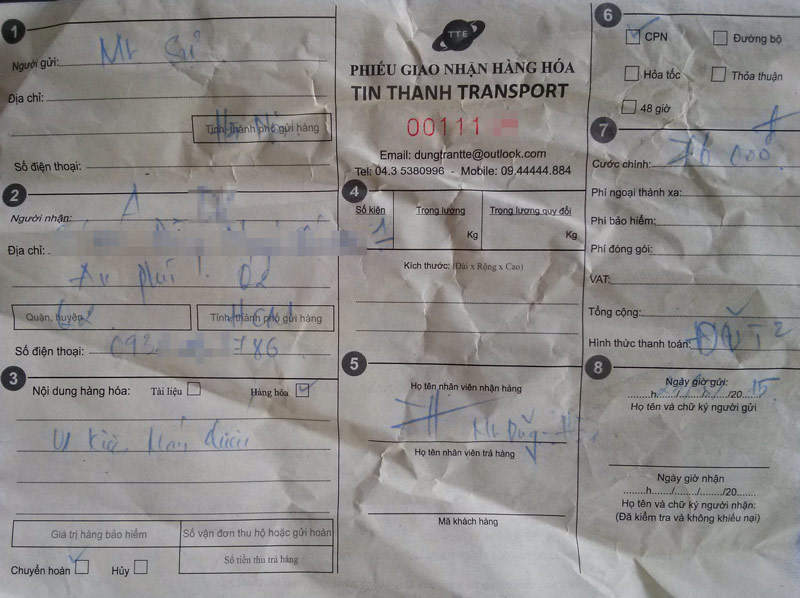 1
Người gửi: Mr Sỉ
Địa chỉ:
Tỉnh, thành phố gửi hàng
Số điện thoại:
2
Người nhận: A
Địa chỉ:
An phú
Quận, huyện Q2
Tỉnh, thành phố gửi hàng HCM
Số điện thoại: 093 786
3
Nội dung hàng hóa: Tài liệu Hàng hóa
Giá trị hàng bảo hiểm
Số vận đơn thu hộ hoặc gửi hoàn
Số tiền thu trả hàng
Chuyển hoàn Hủy
TTE
PHIẾU GIAO NHẬN HÀNG HÓA
TIN THANH TRANSPORT
00111
Email: dungtrantte@outlook.com
Tel: 04.3 5380996 - Mobile: 09.44444.884
4
Số kiện Trọng lượng Trọng lượng quy đổi
1 Kg Kg
Kích thước: (Dài x Rộng x Cao)
5
Họ tên nhân viên nhận hàng
Mr Dũng
Họ tên nhân viên trả hàng
Mã khách hàng
6
CPN Đường bộ
Hỏa tốc Thỏa thuận
48 giờ
7
Cước chính:
Phí ngoại thành xa:
Phí bảo hiểm:
Phí đóng gói:
VAT:
Tổng cộng:
Hình thức thanh toán:
8
Ngày giờ gửi:
h / / /20 15
Họ tên và chữ ký người gửi
Ngày giờ nhận
h / / /20
Họ tên và chữ ký người nhận:
(Đã kiểm tra và không khiếu nại)